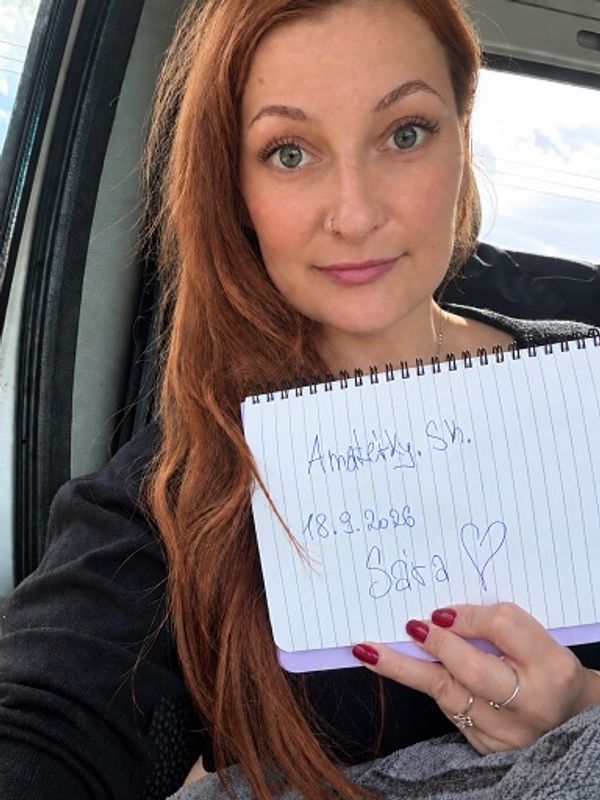 Amatérky.sk.
18.9.2026
Sára ♡